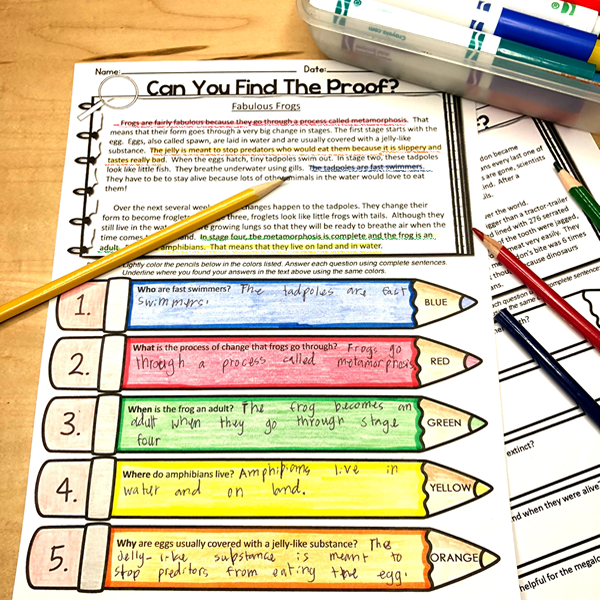 Name: Date:
Can You Find The Proof?
Fabulous Frogs
Frogs are fairly fabulous because they go through a process called metamorphosis. That
means that their form goes through a very big change in stages. The first stage starts with the
egg. Eggs, also called spawn, are laid in water and are usually covered with a jelly-like
substance. The jelly is meant to stop predators who would eat them because it is slippery and
tastes really bad. When the eggs hatch, tiny tadpoles swim out. In stage two, these tadpoles
look like little fish. They breathe underwater using gills. The tadpoles are fast swimmers.
They have to be to stay alive because lots of other animals in the water would love to eat
them!
Over the next several changes happen to the tadpoles. They change their
form to become froglets. three, froglets look like little frogs with tails. Although they
still live in the growing lungs so that they will be ready to breathe air when the
time comes In stage four, the metamorphosis is complete and the frog is an
adult. amphibians. That means that they live on land and in water.
Lightly color the pencils below in the colors listed. Answer each question using complete sentences.
Underline where you found your answers in the text above using the same colors.
1. Who are fast swimmers? The tadpoles are fast
swimmers.
BLUE
2. What is the process of change that frogs go through? Frogs go
through a process called metamorphosis
RED
3. When is the frog an adult? The frog becomes an
adult when they go through stage
four
GREEN
4. Where do amphibians live? Amphibians live in
water and on land.
YELLOW
5. Why are eggs usually covered with a jelly-like substance? The
Jelly-like substance is meant to
stop preditors from eating the egg.
ORANGE
Crayola
?
don became
ans every last one of
are gone, scientists
ind. After a
ds.
ver the world.
gger than a tractor-trailer
d lined with 276 serrated
the tooth were jagged,
meat very easily. They
don's bite was 6 times
because dinosaurs
ch question using complete sentences.
the same colors.
extinct?
nd when they were alive?
helpful for the megalo